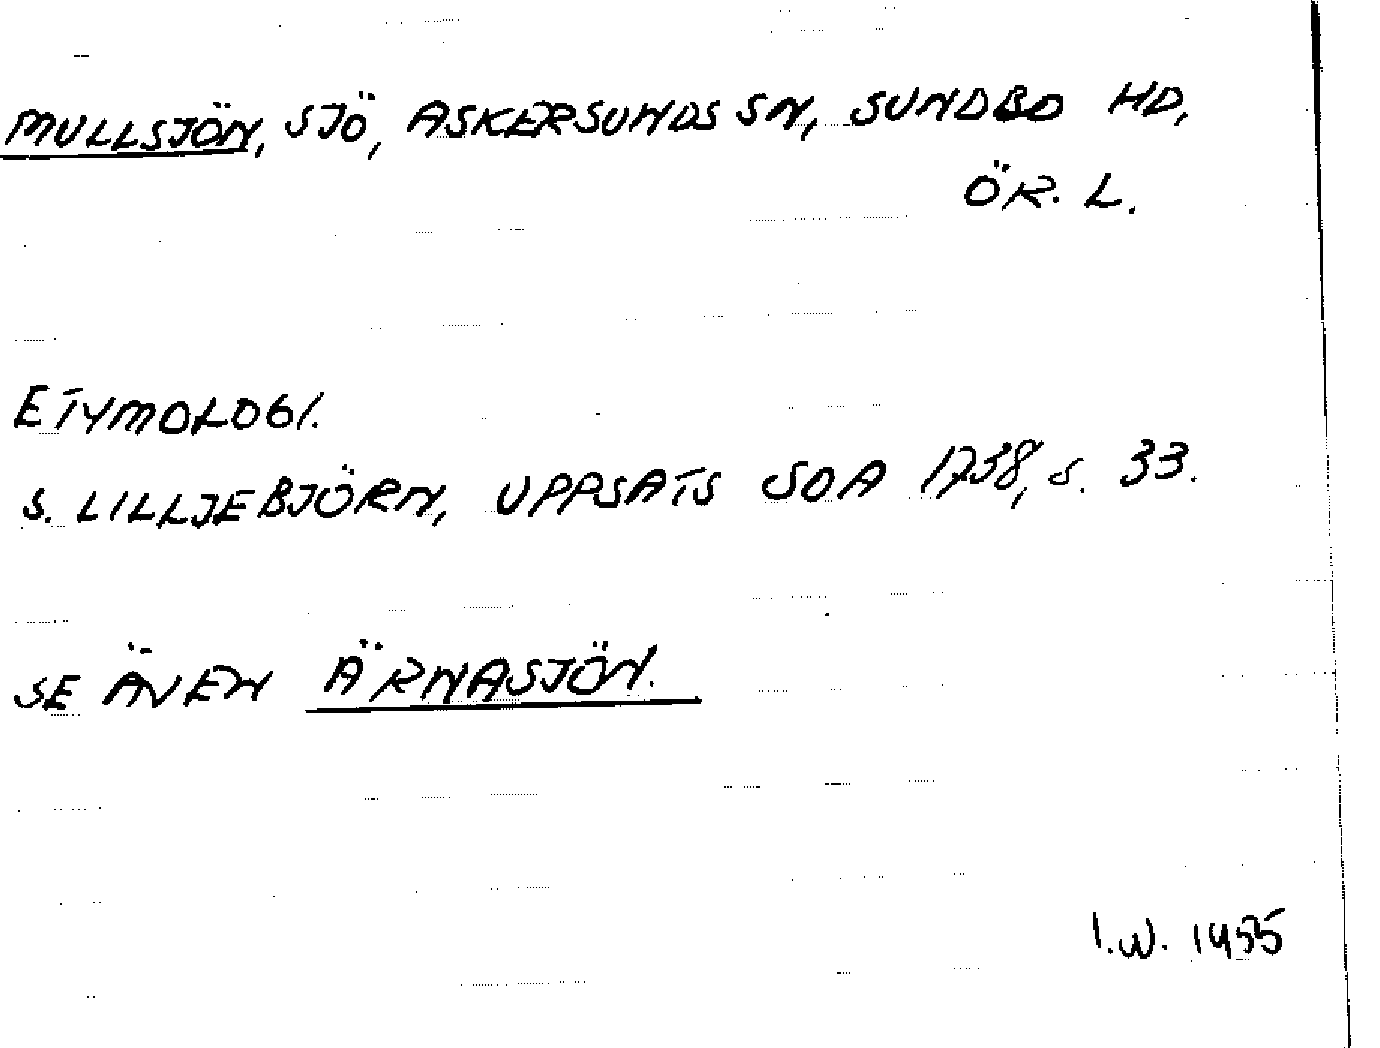 MULLSJÖN, SJÖ, ASKERSUNDS SN, SUNDBO HD,
ÖR. L.
ETYMOLOGI.
S. LILLJEBJÖRN, UPPSATS SOA 1738, S. 33.
SE ÄVEN ÄRNASJÖN.
I.W. 1955